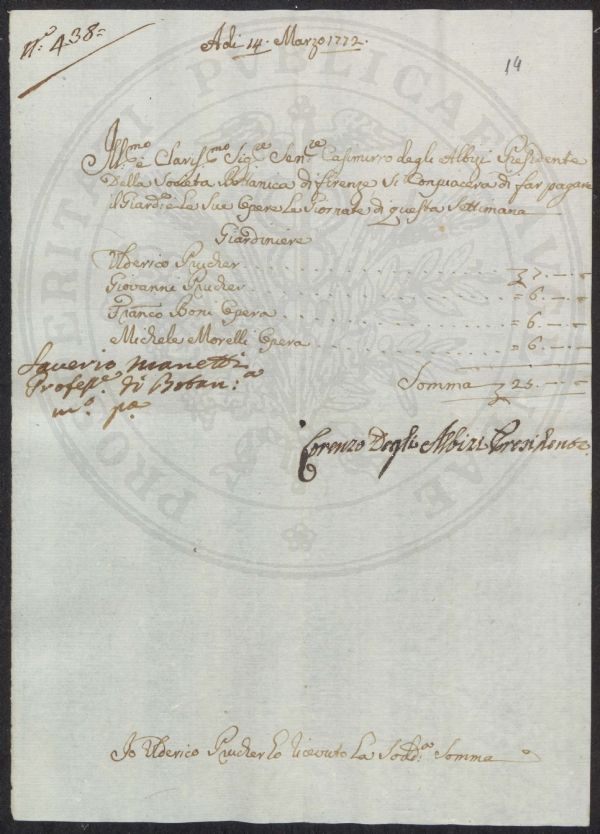 N.º 438=
Adi 14. Marzo 1772.
14
Ill.mo e Clariss.mo Sig.re Sen.re Casimirro degli Albizi Presidente
Della Società Botanica di firenze Si Compiacera di far pagare
il Giard.e e Le Sue Opere Le Giornate di questa Settimana
Giardiniere
Ulderico Prucher . . . . . . . . 7. — —
Giovanni Prucher . . . . . . . . = 6. — —
Franco Boni Opera . . . . . . . . = 6. — —
Michele Morelli Opera . . . . . . . . = 6. — —
Somma 25. — —
Saverio Manetti
Profess.e di Botan.a
m.o p.a
Lorenzo Degli Albizi Presidente
Io Ulderico Prucher ho ricevuto La Sodd.a Somma
PROSPERITATI PUBLICAE AUGENDAE